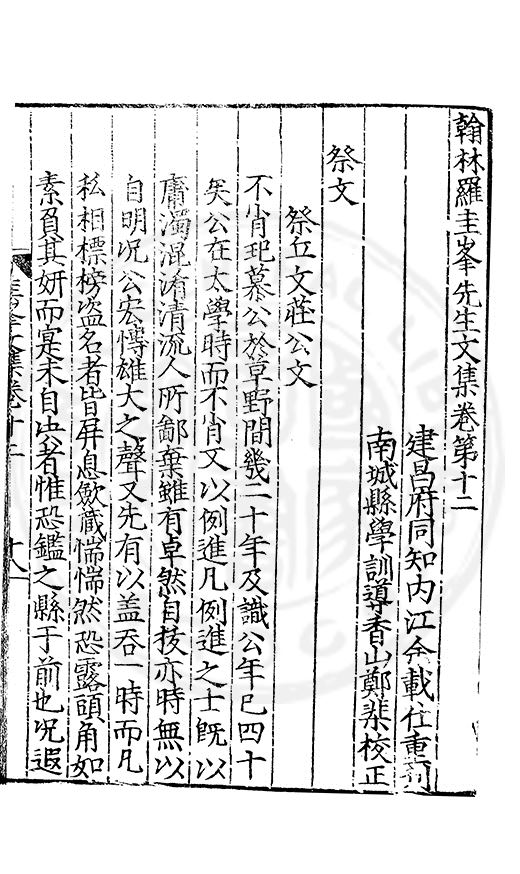 翰林羅圭峯先生文集卷第十二
建昌府同知内江余載仕重刊
南城縣學訓導香山鄭棐校正
祭文
祭丘文莊公文
不肖玘慕公於草野間幾二十年及識公年已四十
矣公在太學時而不肖又以例進凡例進之士既以
庸濁混淆清流人所鄙棄雖有卓然自拔亦時無以
自明况公宏愽雄大之聲又先有以盖吞一時而凡
私相標榜盗名者皆屏息歛藏惴惴然恐露頭角如
素負其妍而寔未自出者惟恐鑑之縣于前也况遐